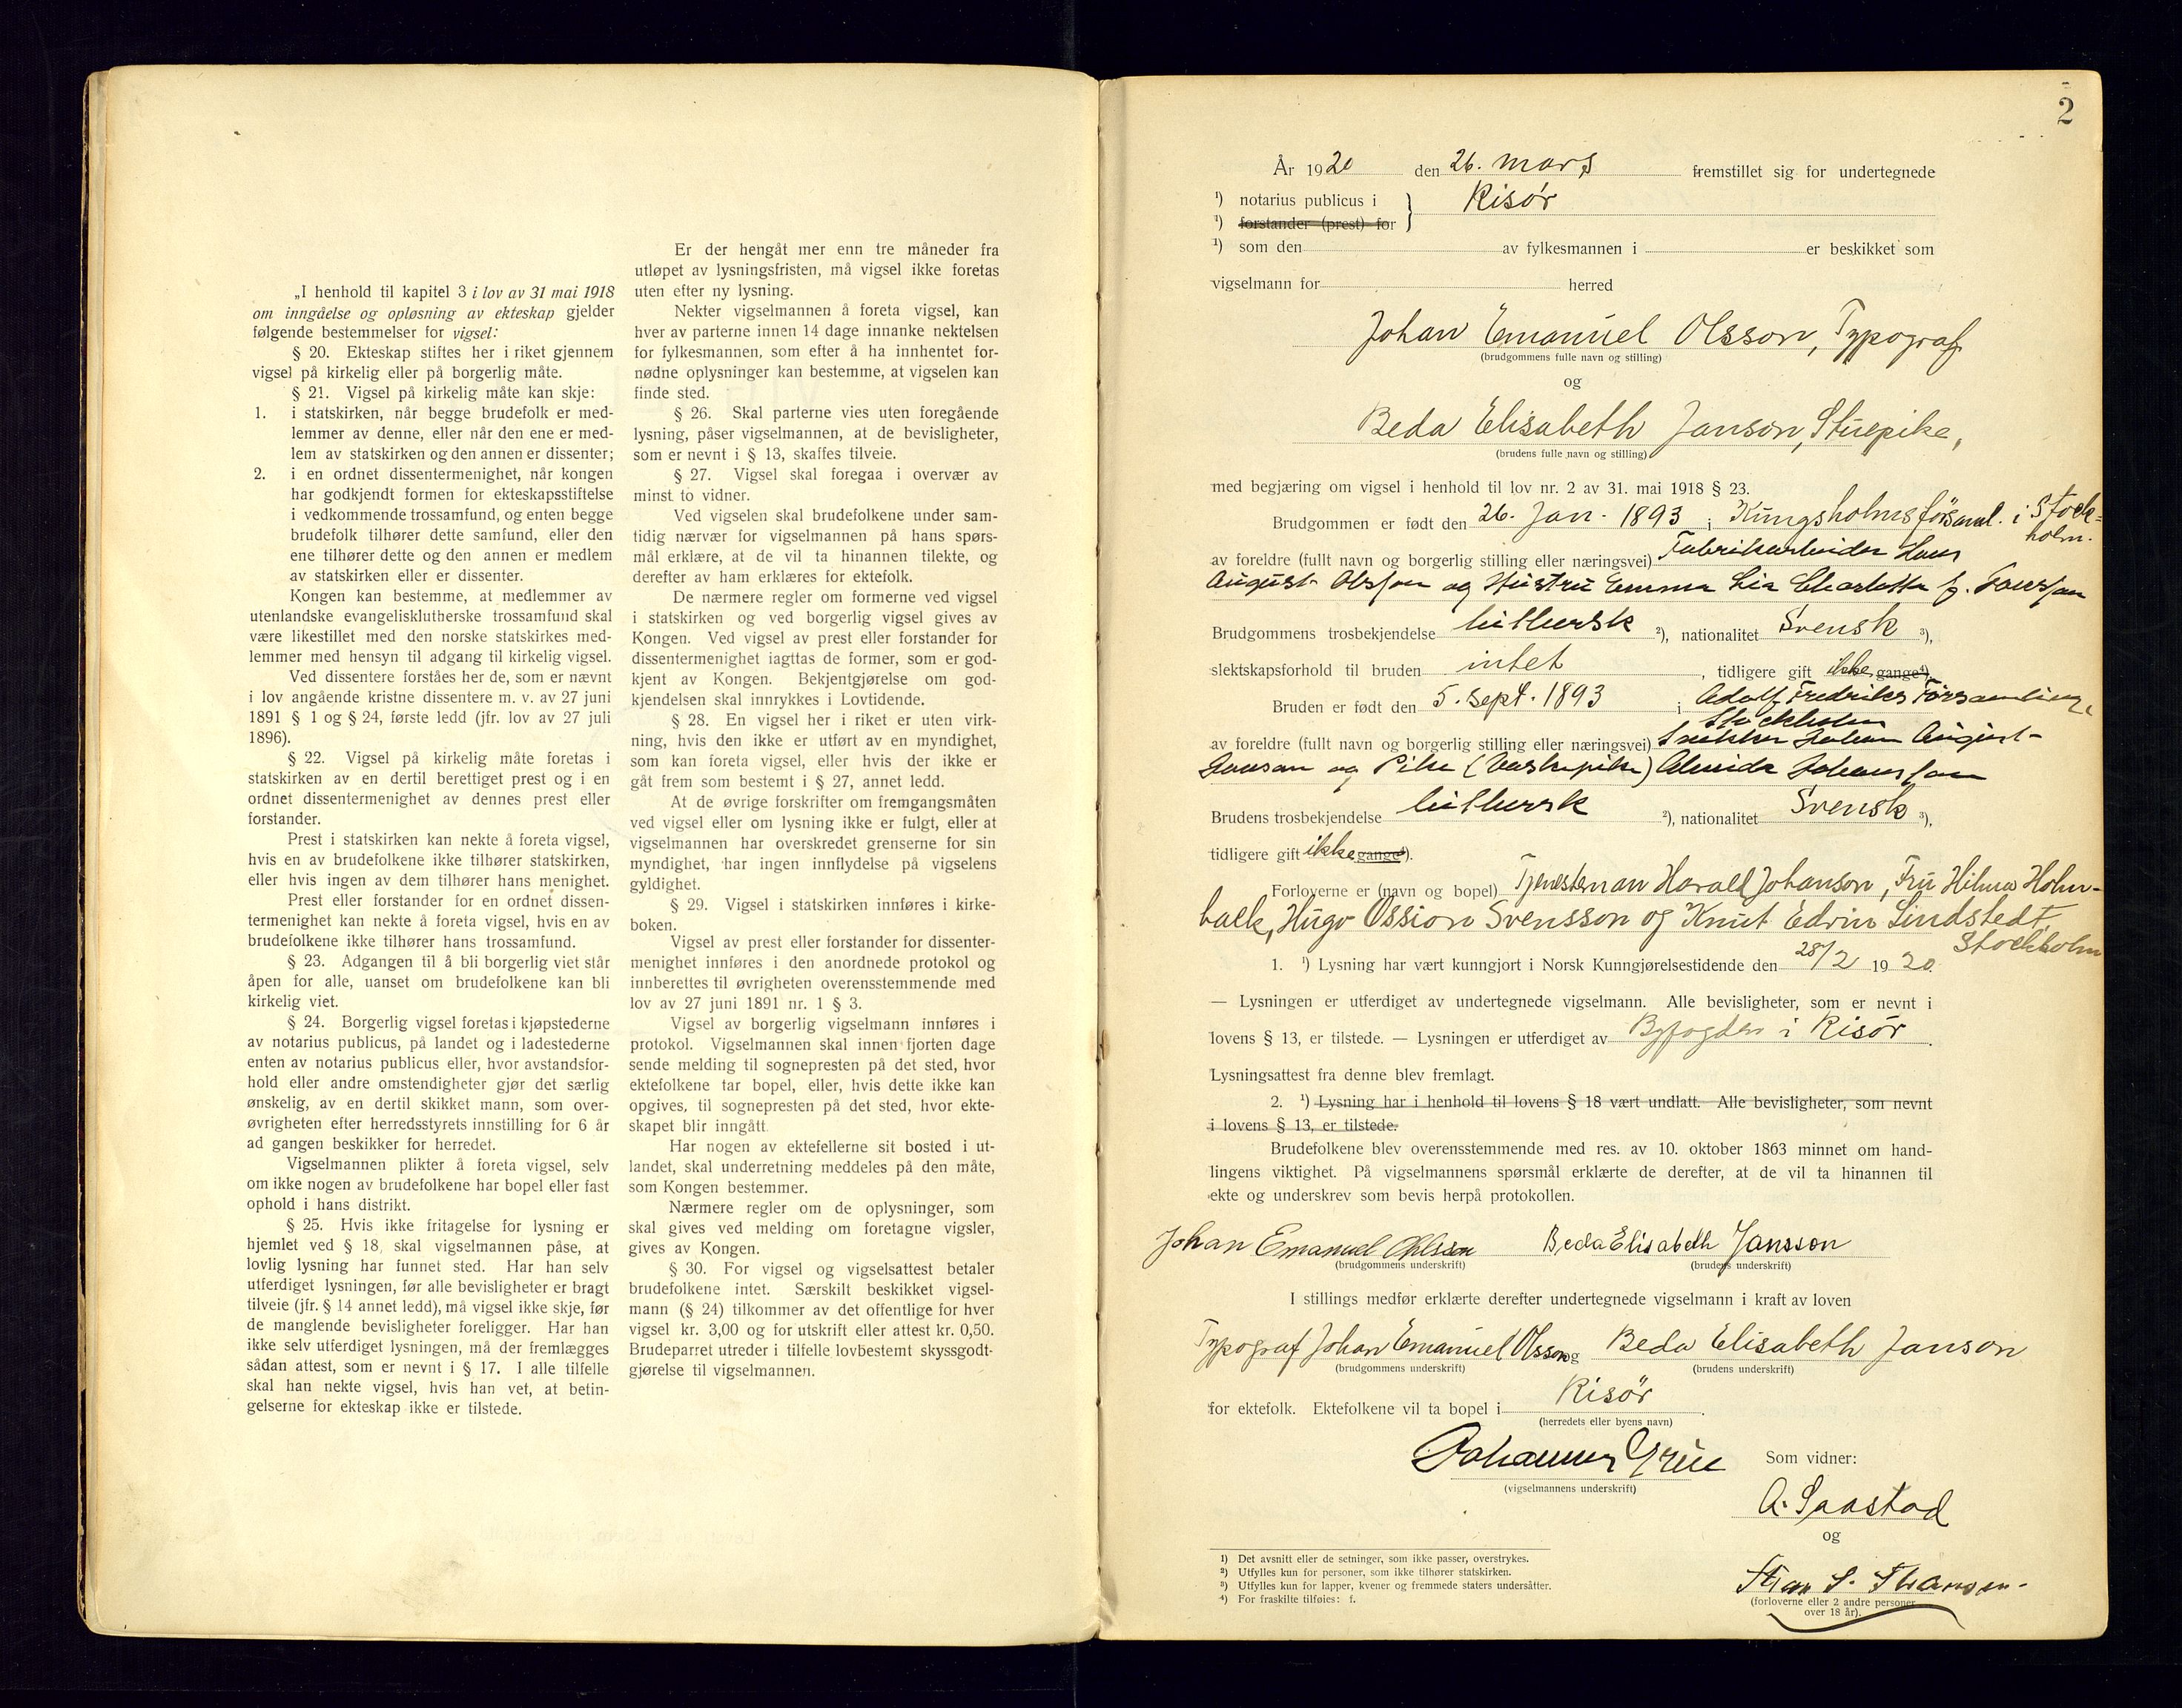 „I henhold til kapitel 3 i lov av 31 mai 1918
om inngåelse og opløsning av ekteskap gjelder
følgende bestemmelser for vigsel:
§ 20. Ekteskap stiftes her i riket gjennem
vigsel på kirkelig eller på borgerlig måte.
§ 21. Vigsel på kirkelig måte kan skje:
1. i statskirken, når begge brudefolk er med-
lemmer av denne, eller når den ene er med-
lem av statskirken og den annen er dissenter;
2. i en ordnet dissentermenighet, når kongen
har godkjendt formen for ekteskapsstiftelse
i vedkommende trossamfund, og enten begge
brudefolk tilhører dette samfund, eller den
ene tilhører dette og den annen er medlem
av statskirken eller er dissenter.
Kongen kan bestemme, at medlemmer av
utenlandske evangeliskluthersk trossamfund skal
være likestillet med den norske statskirkes med-
lemmer med hensyn til adgang til kirkelig vigsel.
Ved dissentere forståes her de, som er nævnt
i lov angående kristne dissentere m. v. av 27 juni
1891 § 1 og § 24, første ledd (jfr. lov av 27 juli
1896).
§ 22. Vigsel på kirkelig måte foretas i
statskirken av en dertil berettiget prest og i en
ordnet dissentermenighet av dennes prest eller
forstander.
Prest i statskirken kan nekte å foreta vigsel,
hvis en av brudefolkene ikke tilhører statskirken,
eller hvis ingen av dem tilhører hans menighet.
Prest eller forstander for en ordnet dissen-
termenighet kan nekte å foreta vigsel, hvis en av
brudefolkene ikke tilhører hans trossamfund.
§ 23. Adgangen til å bli borgerlig viet står
åpen for alle, uanset om brudefolkene kan bli
kirkelig viet.
§ 24. Borgerlig vigsel foretas i kjøpstederne
av notarius publicus, på landet og i ladestederne
enten av notarius publicus eller, hvor avstandsfor-
hold eller andre omstendigheter gjør det særlig
ønskelig, av en dertil skikket mann, som over-
øvrigheten efter herredsstyrets innstilling for 6 år
ad gangen beskikker for herredet.
Vigselmannen plikter å foreta vigsel, selv
om ikke nogen av brudefolkene har bopel eller fast
ophold i hans distrikt.
§ 25. Hvis ikke fritagelse for lysning er
hjemlet ved § 18, skal vigselmannen påse, at
lovlig lysning har funnet sted. Har han selv
utferdiget lysningen, før alle bevisligheter er bragt
tilveie (jfr. § 14 annet ledd), må vigsel ikke skje, før
de manglende bevisligheter foreligger. Har han
ikke selv utferdiget lysningen, må der fremlægges
sådan attest, som er nevnt i § 17. I alle tilfelle
skal han nekte vigsel, hvis han vet, at betin-
gelserne for ekteskap ikke er tilstede.
Er der hengåt mer enn tre måneder fra
utløpet av lysningsfristen, må vigsel ikke foretas
uten efter ny lysning.
Nekter vigselmannen å foreta vigsel, kan
hver av parterne innen 14 dage innanke nektelsen
for fylkesmannen, som efter å ha innhentet for-
nødne oplysninger kan bestemme, at vigselen kan
finde sted.
§ 26. Skal parterne vies uten foregående
lysning, påser vigselmannen, at de bevisligheter,
som er nevnt i § 13, skaffes tilveie.
§ 27. Vigsel skal foregaa i overvær av
minst to vidner.
Ved vigselen skal brudefolkene under sam-
tidig nærvær for vigselmannen på hans spørs-
mål erklære, at de vil ta hinannen tilekte, og
derefter av ham erklæres for ektefolk.
De nærmere regler om formerne ved vigsel
i statskirken og ved borgerlig vigsel gives av
Kongen. Ved vigsel av prest eller forstander for
dissentermenighet iagttas de former, som er god-
kjent av Kongen. Bekjentgjørelse om god-
kjendelsen skal innrykkes i Lovtidende.
§ 28. En vigsel her i riket er uten virk-
ning, hvis den ikke er utført av en myndighet,
som kan foreta vigsel, eller hvis der ikke er
gåt frem som bestemt i § 27, annet ledd.
At de øvrige forskrifter om fremgangsmåten
ved vigsel eller om lysning ikke er fulgt, eller at
vigselmannen har overskredet grenserne for sin
myndighet, har ingen innflydelse på vigselens
gyldighet.
§ 29. Vigsel i statskirken innføres i kirke-
boken.
Vigsel av prest eller forstander for dissenter-
menighet innføres i den anordnede protokol og
innberettes til øvrigheten overensstemmende med
lov av 27 juni 1891 nr. 1 § 3.
Vigsel av borgerlig vigselmann innføres i
protokol. Vigselmannen skal innen fjorten dage
sende melding til sognepresten på det sted, hvor
ektefolkene tar bopel, eller, hvis dette ikke kan
opgives, til sognepresten på det sted, hvor ekte-
skapet blir inngått.
Har nogen av ektefellerne sit bosted i ut-
landet, skal underretning meddeles på den måte,
som Kongen bestemmer.
Nærmere regler om de oplysninger, som
skal gives ved melding om foretagne vigsler,
gives av Kongen.
§ 30. For vigsel og vigselsattest betaler
brudefolkene intet. Særskilt beskikket vigsel-
mann (§ 24) tilkommer av det offentlige for hver
vigsel kr. 3,00 og for utskrift eller attest kr. 0,50.
Brudeparret utreder i tilfelle lovbestemt skyssgodt-
gjørelse til vigselmannen.
2
År 1920 den 26. mars fremstillet sig for undertegnede
¹) notarius publicus i } Risör
¹) forstander (prest) for
¹) som den av fylkesmannen i er beskikket som
vigselmann for herred
Johan Emanuel Olsson, Typograf
(brudgommens fulle navn og stilling)
og
Beda Elisabeth Janson, Stuepike,
(brudens fulle navn og stilling)
med begjæring om vigsel i henhold til lov nr. 2 av 31. mai 1918 § 23.
Brudgommen er født den 26. Jan. 1893 i Kungsholms församl. i Stock-
holm.
av foreldre (fullt navn og borgerlig stilling eller næringsvei) Fabrikarbeider Hans
August Olsson og Hustru Emma Lia Charlotta f. Larsson
Brudgommens trosbekjendelse luthersk ²), nationalitet Svensk ³),
slektskapsforhold til bruden intet , tidligere gift ikke gange⁴),
Bruden er født den 5. sept. 1893 i Adolf Fredriks Församling,
Stockholm
av foreldre (fullt navn og borgerlig stilling eller næringsvei) Snekker Johan August
Janson og Pike (Vaskepike) Alvida Johansson
Brudens trosbekjendelse luthersk ²), nationalitet Svensk ³),
tidligere gift ikke gange⁴).
Forloverne er (navn og bopel) Tjensteman Harald Johanson, Fru Hilma Holm-
back, Hugo Ossion Svensson og Knut Edvin Lindstedt,
Stockholm
1. ¹) Lysning har vært kunngjort i Norsk Kunngjørelsestidende den 28/2 1920.
— Lysningen er utferdiget av undertegnede vigselmann. Alle bevisligheter, som er nevnt i
lovens § 13, er tilstede. — Lysningen er utferdiget av Byfogden i Risör.
Lysningsattest fra denne blev fremlagt.
2. ¹) Lysning har i henhold til lovens § 18 vært undlatt. Alle bevisligheter, som nevnt
i lovens § 13, er tilstede.
Brudefolkene blev overensstemmende med res. av 10. oktober 1863 minnet om hand-
lingens viktighet. På vigselmannens spørsmål erklærte de derefter, at de vil ta hinannen til
ekte og underskrev som bevis herpå protokollen.
Johan Emanuel Ohlsson Beda Elisabeth Jansson
(brudgommens underskrift) (brudens underskrift)
I stillings medfør erklærte derefter undertegnede vigselmann i kraft av loven
Typograf Johan Emanuel Olsson og Beda Elisabeth Janson
(brudgommens underskrift) (brudens underskrift)
for ektefolk. Ektefolkene vil ta bopel i Risör.
(herredets eller byens navn)
Johannes Grue Som vidner:
(vigselmannens underskrift)
A. Saastad
og
S. Hansen.
(forloverne eller 2 andre personer
over 18 år).
¹) Det avsnitt eller de setninger, som ikke passer, overstrykes.
²) Utfylles kun for personer, som ikke tilhører statskirken.
³) Utfylles kun for lapper, kvener og fremmede staters undersåtter.
⁴) For fraskilte tilføies: f.